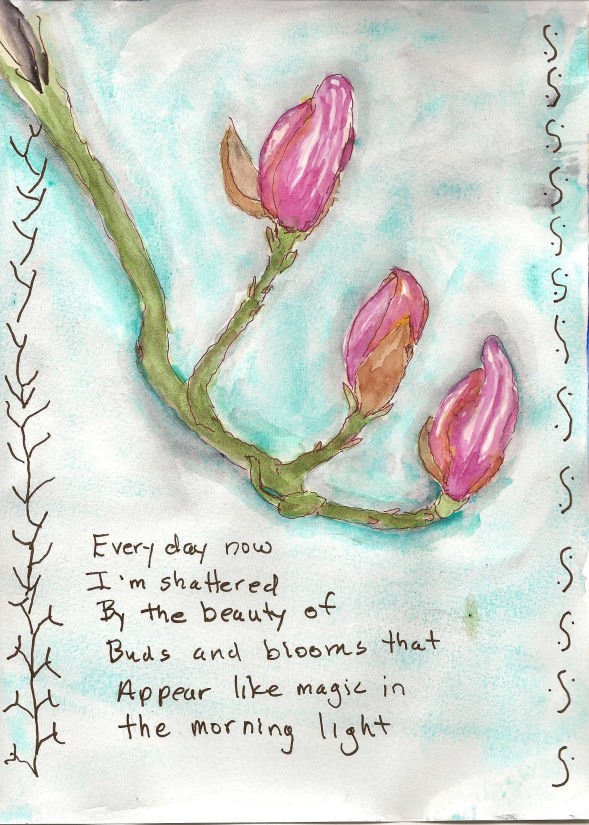 Every day now
I'm shattered
By the beauty of
Buds and blooms that
Appear like magic in
the morning light